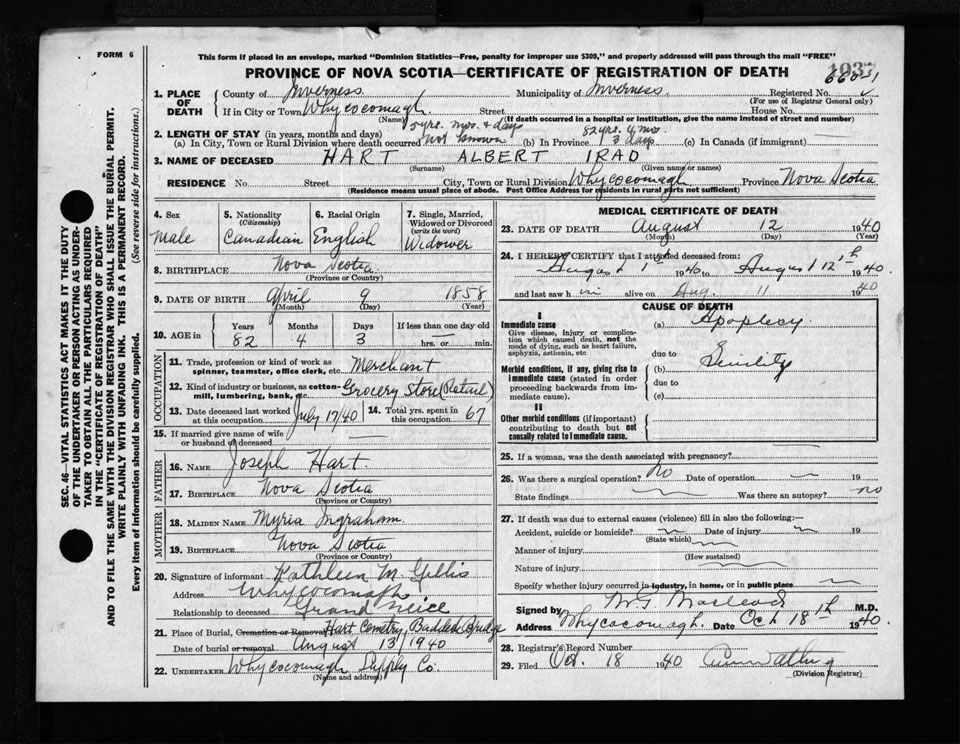 FORM 6
This form if placed in an envelope, marked "Dominion Statistics—Free, penalty for improper use $300," and properly addressed will pass through the mail "FREE"
PROVINCE OF NOVA SCOTIA—CERTIFICATE OF REGISTRATION OF DEATH
1. PLACE OF DEATH
County of Inverness Municipality of Inverness Registered No.
(For use of Registrar General only)
If in City or Town Whycocomagh Street House No.
(Name) (If death occurred in a hospital or institution, give the name instead of street and number)
2. LENGTH OF STAY (in years, months and days) 5 yrs. mos. & days 82 yrs. 4 mo
(a) In City, Town or Rural Division where death occurred not known (b) In Province 3 days (c) In Canada (if immigrant)
3. NAME OF DECEASED HART ALBERT IRAD
(Surname) (Given name or names)
RESIDENCE No. Street City, Town or Rural Division Whycocomagh Province Nova Scotia
(Residence means usual place of abode. Post Office Address for residents in rural parts not sufficient)
4. Sex Male
5. Nationality (Citizenship) Canadian
6. Racial Origin English
7. Single, Married, Widowed or Divorced (write the word) Widower
8. BIRTHPLACE Nova Scotia
(Province or Country)
9. DATE OF BIRTH April 9 1858
(Month) (Day) (Year)
10. AGE in Years 82 Months 4 Days 3 If less than one day old hrs. or min.
OCCUPATION
11. Trade, profession or kind of work as spinner, teamster, office clerk, etc. Merchant
12. Kind of industry or business, as cotton-mill, lumbering, bank, etc. Grocery Store (Retail)
13. Date deceased last worked at this occupation July 17/40
14. Total yrs. spent in this occupation 67
15. If married give name of wife or husband of deceased
FATHER
16. NAME Joseph Hart
17. BIRTHPLACE Nova Scotia
(Province or Country)
MOTHER
18. MAIDEN NAME Myria Ingraham
19. BIRTHPLACE Nova Scotia
(Province or Country)
20. Signature of informant Kathleen M. Gillis
Address Whycocomagh
Relationship to deceased Grand Neice
21. Place of Burial, Cremation or Removal Hart Cemetry, Baddeck Bridge
Date of burial or removal August 13/1940
22. UNDERTAKER Whycocomagh Supply Co.
(Name and address)
MEDICAL CERTIFICATE OF DEATH
23. DATE OF DEATH August 12 1940
(Month) (Day) (Year)
24. I HEREBY CERTIFY that I attended deceased from:
August 1st 1940 to August 12th 1940
and last saw h im alive on Aug. 11 1940
CAUSE OF DEATH
I
Immediate cause
Give disease, injury or complication which caused death, not the mode of dying, such as heart failure, asphyxia, asthenia, etc.
(a) Apoplexy
due to
Morbid conditions, if any, giving rise to immediate cause (stated in order proceeding backwards from immediate cause).
(b) Senility
due to
(c)
II
Other morbid conditions (if important) contributing to death but not causally related to immediate cause.
25. If a woman, was the death associated with pregnancy?
26. Was there a surgical operation? no Date of operation 19
State findings Was there an autopsy? no
27. If death was due to external causes (violence) fill in also the following:—
Accident, suicide or homicide? Date of injury 19
(State which)
Manner of injury
(How sustained)
Nature of injury
Specify whether injury occurred in industry, in home, or in public place
Signed by Macleod M.D.
Address Whycocomagh. Date Oct 18th 1940.
28. Registrar's Record Number
29. Filed Oct. 18 1940
(Division Registrar)
SEC. 46—VITAL STATISTICS ACT MAKES IT THE DUTY
OF THE UNDERTAKER OR PERSON ACTING AS UNDER-
TAKER TO OBTAIN ALL THE PARTICULARS REQUIRED
IN THE "CERTIFICATE OF REGISTRATION OF DEATH"
AND TO FILE THE SAME WITH THE DIVISION REGISTRAR WHO SHALL ISSUE THE BURIAL PERMIT.
WRITE PLAINLY WITH UNFADING INK. THIS IS A PERMANENT RECORD.
Every item of information should be carefully supplied. (See reverse side for instructions.)